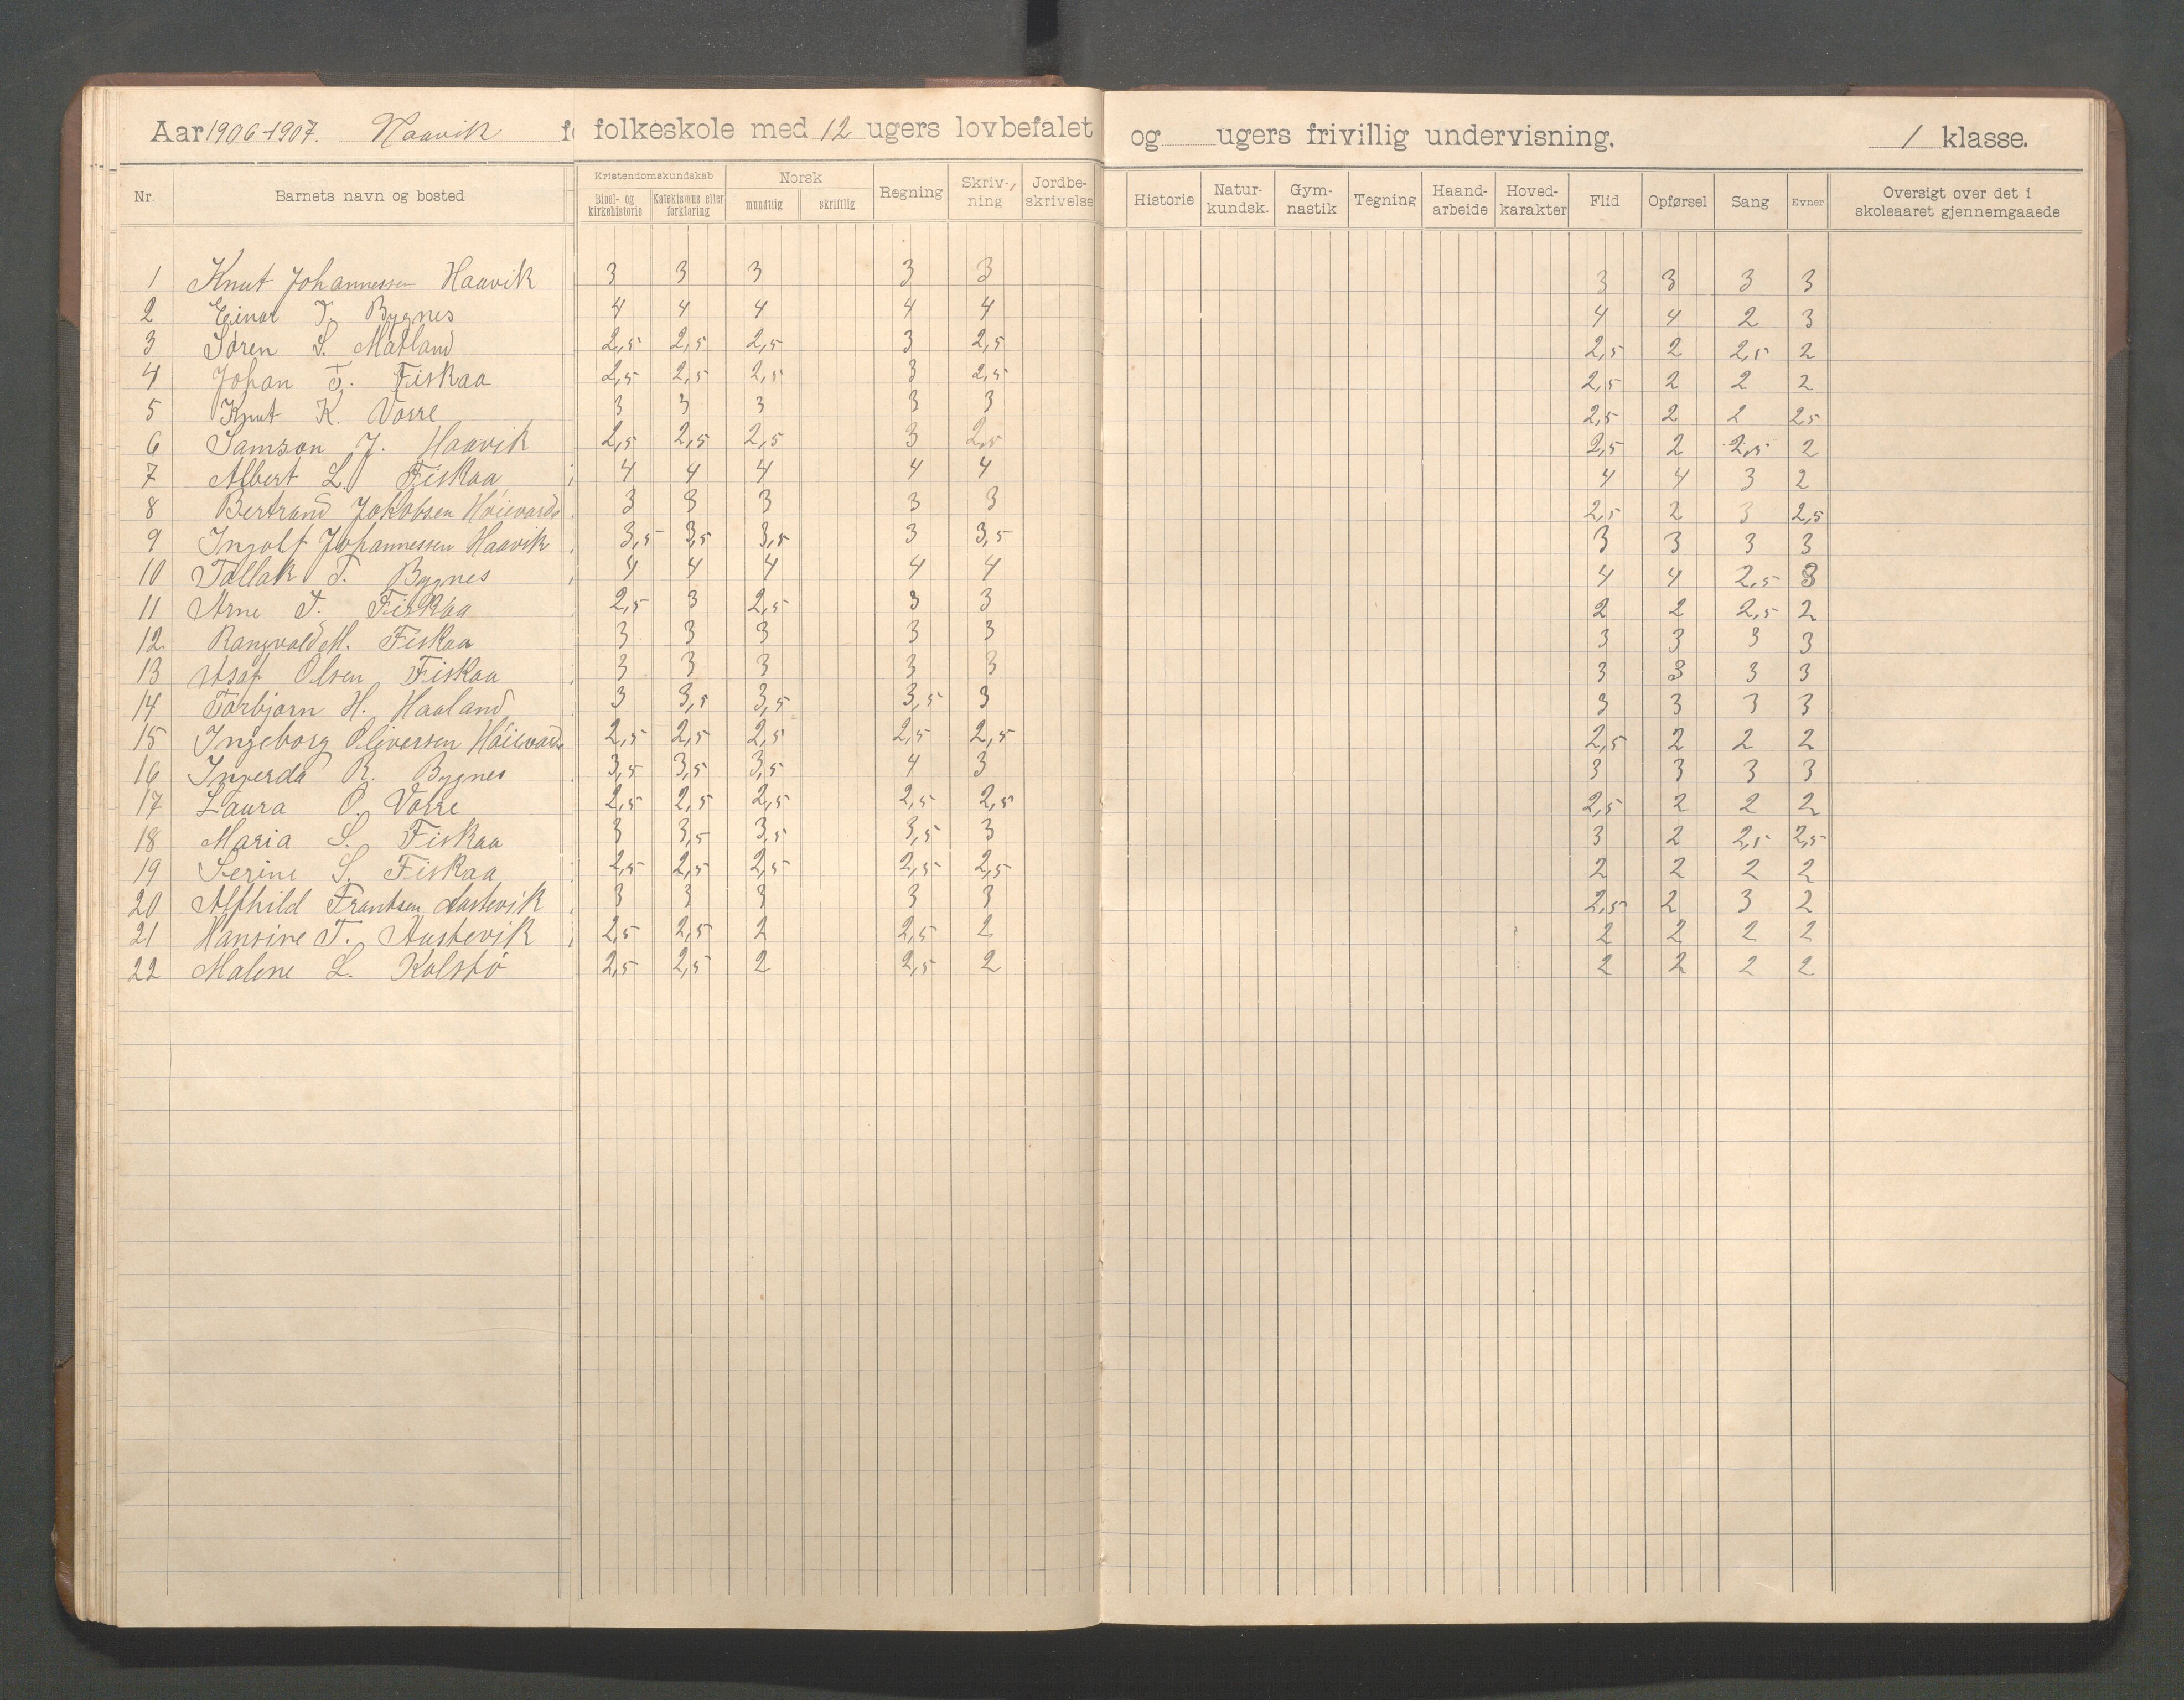 Aar 1906-1907. Haavik f folkeskole med 12 ugers lovbefalet og ugers frivillig undervisning. 1 klasse.
Nr. Barnets navn og bosted Kristendomskundskab Bibel- og kirkehistorie Katekismus eller forklaring Norsk mundtlig skriftlig Regning Skriv-, ning Jordbe- skrivelse Historie Natur- kundsk. Gym- nastik Tegning Haand- arbeide Hoved- karakter Flid Opførsel Sang Evner Oversigt over det i skoleaaret gjennemgaaede
1 Knut Johannessen Haavik 3 3 3 3 3 3 3 3 3
2 Einar T. Bygnes 4 4 4 4 4 4 4 2 3
3 Søren S. Matland 2,5 2,5 2,5 3 2,5 2,5 2 2,5 2
4 Johan T. Fiskaa 2,5 2,5 2,5 3 2,5 2,5 2 2 2
5 Knut K. Vorre 3 3 3 3 3 2,5 2 2 2,5
6 Samson J. Haavik 2,5 2,5 2,5 3 2,5 2,5 2 2,5 2
7 Albert L. Fiskaa 4 4 4 4 4 4 4 3 2
8 Bertrand Jakobsen Høievarde 3 3 3 3 3 2,5 2 3 2,5
9 Ingolf Johannessen Haavik 3,5 3,5 3,5 3 3,5 3 3 3 3
10 Tallak T. Bygnes 4 4 4 4 4 4 4 2,5 3
11 Arne T. Fiskaa 2,5 3 2,5 3 3 2 2 2,5 2
12 Rangvald M. Fiskaa 3 3 3 3 3 3 3 3 3
13 Asaf Olsen Fiskaa 3 3 3 3 3 3 3 3 3
14 Torbjørn H. Haaland 3 3,5 3,5 3,5 3 3 3 3 3
15 Ingeborg Oliversen Høievarde 2,5 2,5 2,5 2,5 2,5 2,5 2 2 2
16 Ingerda R. Bygnes 3,5 3,5 3,5 4 3 3 3 3 3
17 Laura O. Vorre 2,5 2,5 2,5 2,5 2,5 2,5 2 2 2
18 Maria S. Fiskaa 3 3,5 3,5 3,5 3 3 2 2,5 2,5
19 Serine S. Fiskaa 2,5 2,5 2,5 2,5 2,5 2 2 2 2
20 Alfhild Frantsen Austevik 3 3 3 3 3 2,5 2 3 2
21 Hansine T. Austevik 2,5 2,5 2 2,5 2 2 2 2 2
22 Malene L. Kolstø 2,5 2,5 2 2,5 2 2 2 2 2